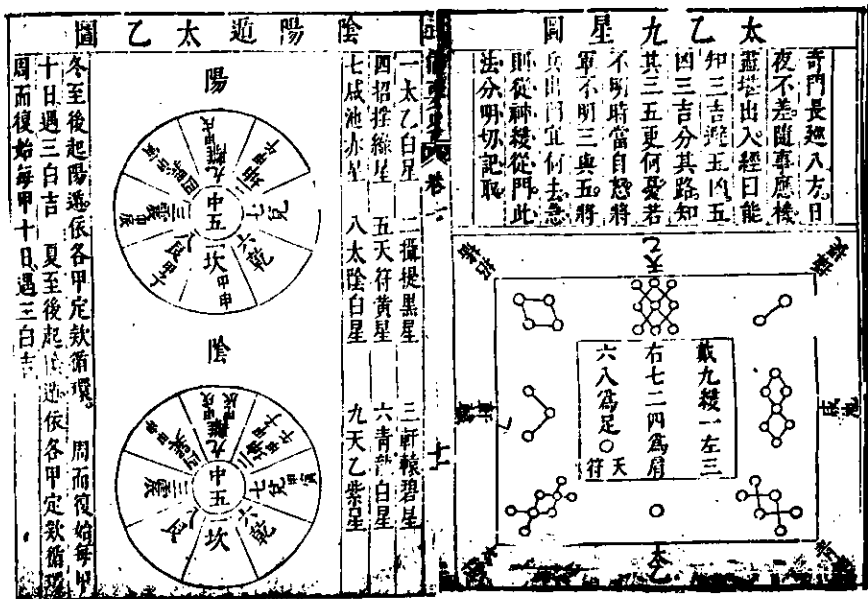 太乙九星圖
奇門長廵八方日
夜不差隨事應機
盡堪出入經曰能
知三吉避五凶五
凶三吉分其路知
其三五更何憂若
不明時當自怒將
軍不明三與五將
兵出門宜何去急
則從神緩從門此
法分明切記取
天乙
招搖
咸池
戴九履一左三
右七二四爲肩
六八爲足○天符
太乙
卷一
十一
陰陽遁太乙圖
一太乙白星 二攝提黑星 三軒轅碧星
四招搖綠星 五天符黃星 六青龍白星
七咸池赤星 八太陰白星 九天乙紫星
陽
中五
九離
七兌
六乾
坎
八艮
三震
陰
中五
九離
七兌
六乾
坎
艮
三震
冬至後起陽遁依各甲定欵循環 周而復始每甲
十日遇三白吉 夏至後起陰遁依各甲定欵循環
周而復始每甲十日遇三白吉